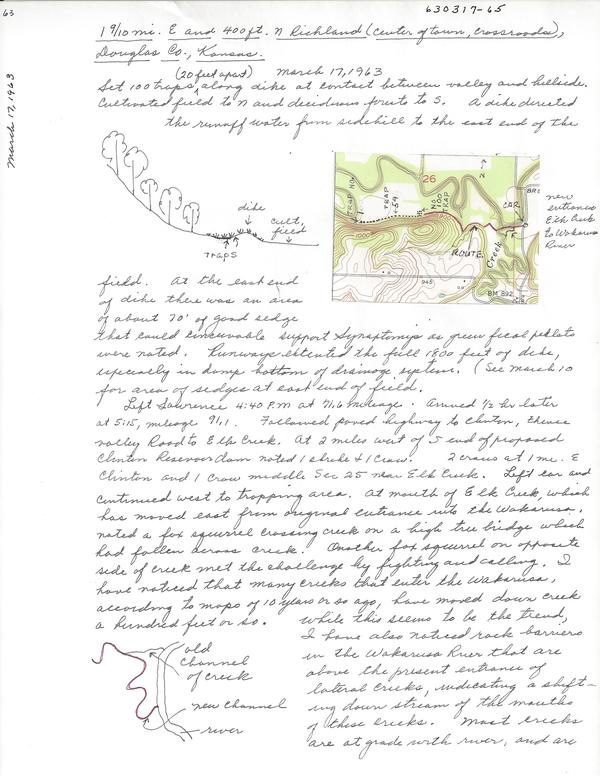 63
630317-65
March 17, 1963
1 9/10 mi. E and 400 ft. N Richland (center of town, crossroads),
Douglas Co., Kansas.
(20 feet apart) March 17, 1963
Set 100 traps along dike at contact between valley and hillside.
Cultivated field to N and deciduous forest to S. A dike directed
the runoff water from sidehill to the east end of the
dike
cult.
field
TRAPS
26
N
TRAP NO.
1
TRAP
54
NO
100
TRAP
CAR
ROUTE
Creek
1000
945
BM 892
new
entrance
Elk Creek
to Wakarusa
River
field. At the east end
of dike there was an area
of about 70' of good sedge
that could conceivable support Synaptomys as green fecal pellets
were noted. Runways extented the full 1800 feet of dike,
especially in damp bottom of drainage system. (See March 10
for area of sedges at east end of field.
Left Lawrence 4:40 P.M at 71.6 mileage. Arrived 1/2 hr later
at 5:15, mileage 91.1. Followed paved highway to Clinton, thence
valley Road to Elk Creek. At 2 miles west of S end of proposed
Clinton Reservoir dam noted 1 shrike & 1 Crow. 2 crows at 1 mi. E
Clinton and 1 Crow middle Sec 25 near Elk Creek. Left car and
continued west to trapping area. At mouth of Elk Creek, which
has moved east from original entrance into the Wakarusa,
noted a fox squirrel crossing creek on a high tree bridge which
had fallen across creek. Another fox squirrel on opposite
side of creek met the challenge by fighting and calling. I
have noticed that many creeks that enter the Wakarusa,
according to maps of 10 years or so ago, have moved down creek
a hundred feet or so. While this seems to be the trend,
I have also noticed rock barriers
in the Wakarusa River that are
above the present entrance of
lateral creeks, indicating a shift-
ing down stream of the mouths
of these creeks. Most creeks
are at grade with river, and are
old
channel
of creek
new channel
river